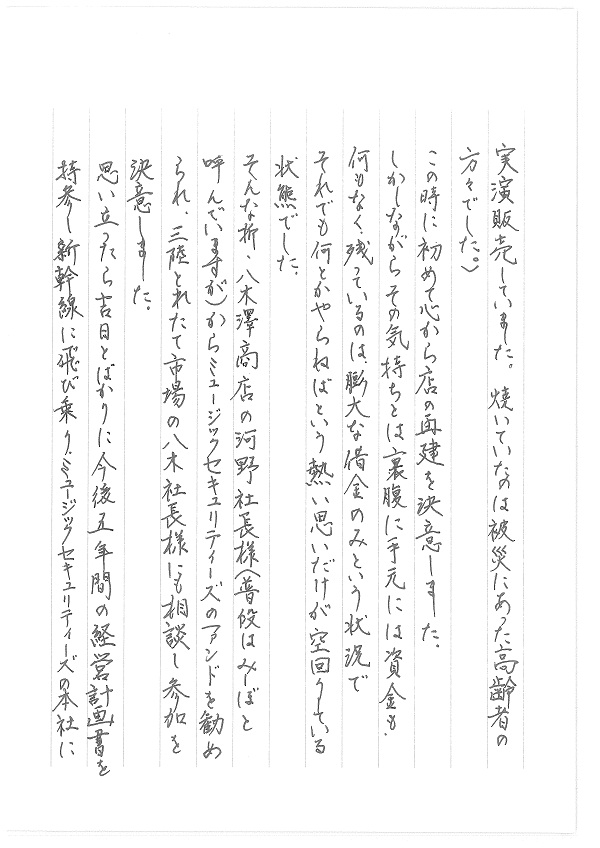 実演販売していました。焼いていたのは被災にあった高齢者の
方々でした。）
この時に初めて心から店の再建を決意しました。
しかしながらその気持ちとは裏腹に手元には資金も、
何もなく、残っているのは、膨大な借金のみという状況で
それでも何とかやらねばという熱い思いだけが空回りしている
状態でした。
そんな折、八木澤商店の河野社長様（普段はみーぼと
呼んでいますが）からミュージックセキュリティーズのファンドを勧め
られ、三陸とれたて市場の八木社長様にも相談し参加を
決意しました。
思い立ったら吉日とばかりに今後五年間の経営計画書を
持参し新幹線に飛び乗り、ミュージックセキュリティーズの本社に